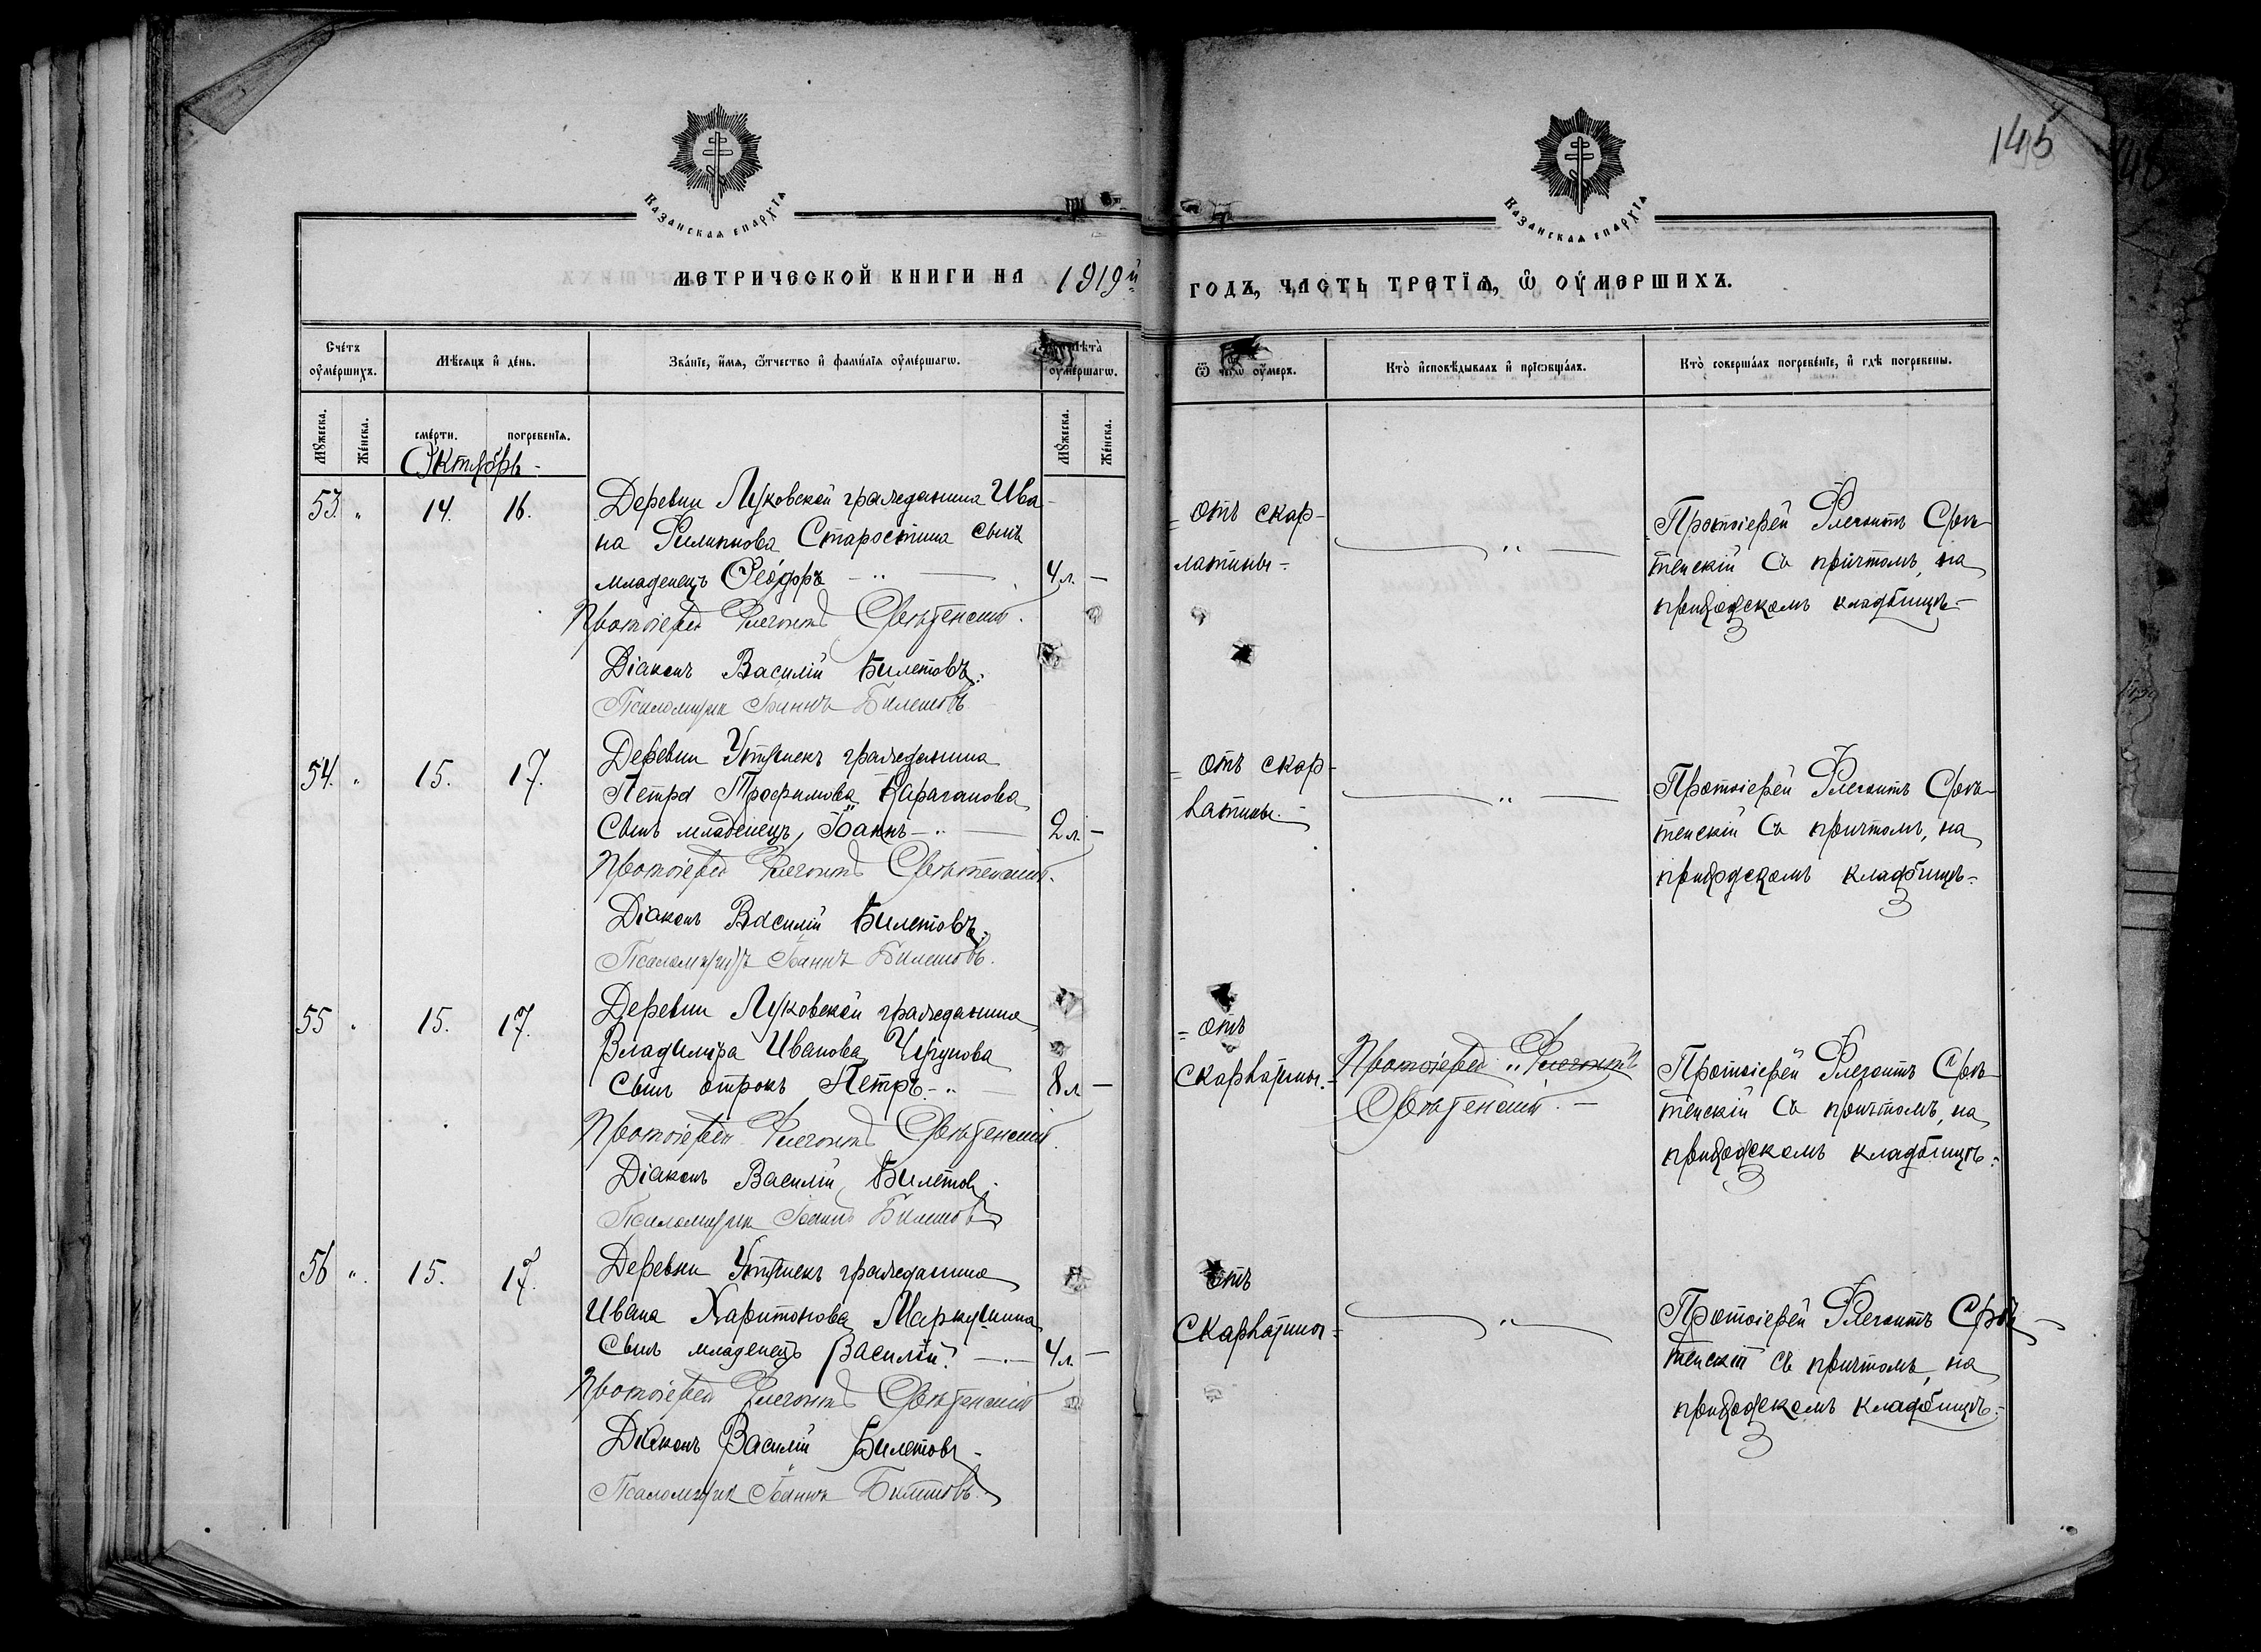 145
КАЗАНСКАѦ ЕПАРХІѦ
КАЗАНСКАѦ ЕПАРХІѦ
МЕТРИЧЕСКОЙ КНИГИ НА 1919й
ГОДЪ, ЧАСТЬ ТРЕТІѦ, Ѡ ОУМЕРШИХЪ.
Счетъ оумершихъ.
Мѣсяцъ и день.
Званіе, имя, ѿчество и фамиліѧ оумершагѡ.
Лѣта оумершагѡ.
Ѿ чегѡ оумеръ.
Кто исповѣдывалъ и пріѡбщалъ.
Кто совершалъ погребеніе, и гдѣ погребены.
Мꙋжеска.
Женска.
смерти.
погребеніѧ.
Мꙋжеска.
Женска.
Октябрь
53. " 14. 16.
Деревни Луковской гражданина Ива
на Филиппова Старостина сынъ
младенецъ Ѳеодоръ — " — 4 л. —
Протоіерей Флегонтъ Срѣтенскій.
Діаконъ Василій Билетовъ.
Псаломщик Іоаннъ Билетовъ
= отъ скар-
латины =
— " —
Протоіерей Флегонтъ Срѣ-
тенскій съ причтомъ, на
приходскомъ кладбищѣ. —
54. " 15. 17.
Деревни гражданина
Петра Трофимова
Сынъ младенецъ Іоаннъ — " — 2 л. —
Протоіерей Флегонтъ Срѣтенскій.
Діаконъ Василій Билетовъ.
Псаломщикъ Іоаннъ Билетовъ.
= отъ скар-
латины. =
— " —
Протоіерей Флегонтъ Срѣ-
тенскій съ причтомъ, на
приходскомъ кладбищѣ. —
55 " 15. 17.
Деревни Луковской гражданина
Владиміра Иванова
Сынъ отрокъ Петръ. — " — 8 л. —
Протоіерей Флегонтъ Срѣтенскій.
Діаконъ Василій Билетов.
Псаломщик Іоаннъ Билетовъ
= отъ
скарлатины. =
Протоіерей Флегонтъ
Срѣтенскій. —
Протоіерей Флегонтъ Срѣ-
тенскій съ причтомъ, на
приходскомъ кладбищѣ. =
56 " 15. 17.
Деревни гражданина
Ивана Харитонова Маркушина
Сынъ младенецъ Василій. — 4 л. —
Протоіерей Флегонтъ Срѣтенскій
Діаконъ Василій Билетовъ
Псаломщик Іоаннъ Билетовъ.
отъ
скарлатины =
— " —
Протоіерей Флегонтъ Срѣ-
тенскій съ причтомъ, на
приходскомъ кладбищѣ. =